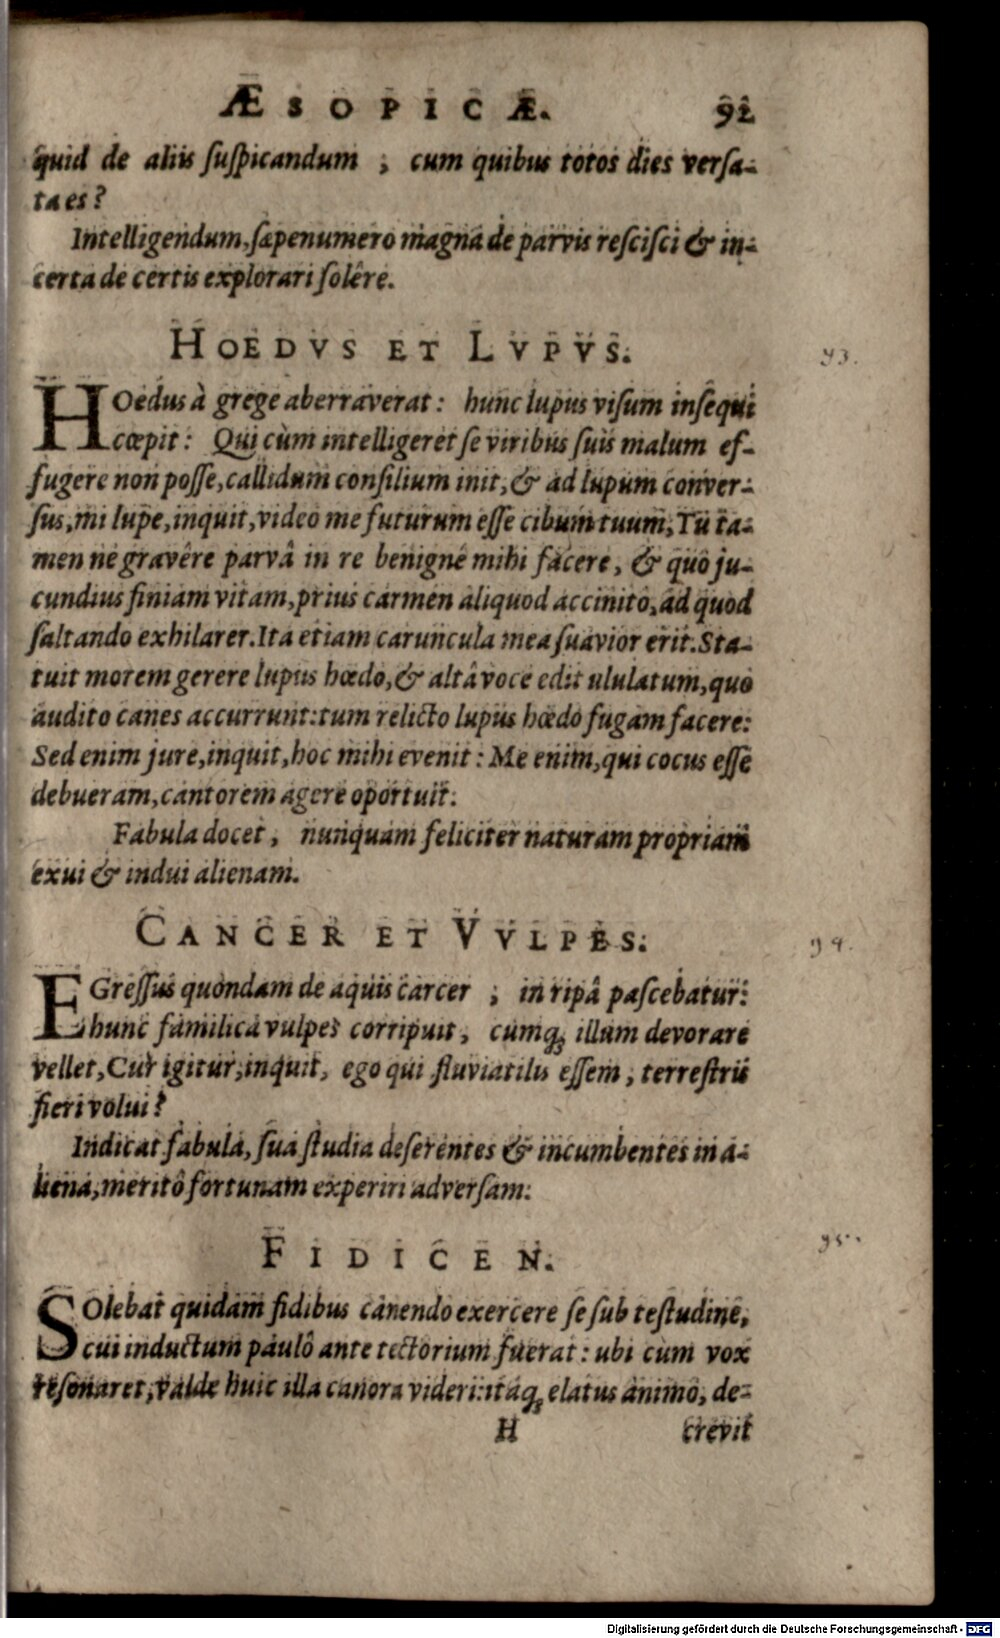 ÆSOPICÆ. 92
quid de aliis ſuſpicandum , cum quibus totos dies verſa-
ta es?
Intelligendum, ſæpenumero magna de parvis reſciſci & in-
certa de certis explorari ſolêre.
HOEDVS ET LVPVS.
93.
HOedus à grege aberraverat : hunc lupus viſum inſequi
cœpit : Qui cùm intelligeret ſe viribus ſuis malum ef-
fugere non poſſe, callidum conſilium init, & ad lupum conver-
ſus, mi lupe, inquit, video me futurum eſſe cibum tuum, Tu ta-
men ne gravêre parvâ in re benignè mihi facere, & quò ju-
cundius finiam vitam, prius carmen aliquod accinito, ad quod
ſaltando exhilarer. Ita etiam caruncula mea ſuavior erit. Sta-
tuit morem gerere lupus hœdo, & altâ voce edit ululatum, quo
audito canes accurrunt: tum relicto lupus hœdo fugam facere:
Sed enim jure, inquit, hoc mihi evenit : Me enim, qui cocus eſſe
debueram, cantorem agere oportuit.
Fabula docet , nunquam feliciter naturam propriam
exui & indui alienam.
CANCER ET VVLPES.
94.
EGreſſus quondam de aquis carcer ; in ripâ paſcebatur:
hunc famelica vulpes corripuit, cumq; illum devorare
vellet, Cur igitur, inquit, ego qui fluviatilis eſſem, terreſtris
fieri volui?
Indicat fabula, ſua ſtudia deſerentes & incumbentes in a-
liena, meritò fortunam experiri adverſam.
FIDICEN.
95.
SOlebat quidam fidibus canendo exercere ſe ſub teſtudine,
cui inductum paulò ante tectorium fuerat : ubi cùm vox
reſonaret, valde huic illa canora videri: itaq; elatus animo, de-
H crevit
Digitalisierung gefördert durch die Deutsche Forschungsgemeinschaft - DFG